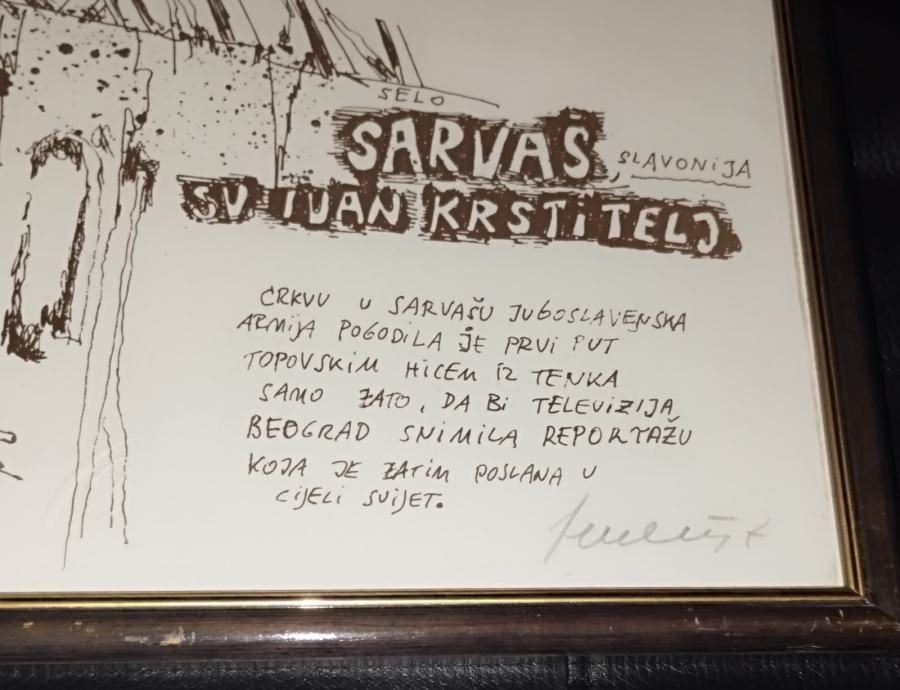 SELO
SARVAŠ, SLAVONIJA
SV IVAN KRSTITELJ
CRKVU U SARVAŠU JUGOSLAVENSKA
ARMIJA POGODILA JE PRVI PUT
TOPOVSKIM HICEM IZ TENKA
SAMO ZATO, DA BI TELEVIZIJA
BEOGRAD SNIMILA REPORTAŽU
KOJA JE ZATIM POSLANA U
CIJELI SVIJET.